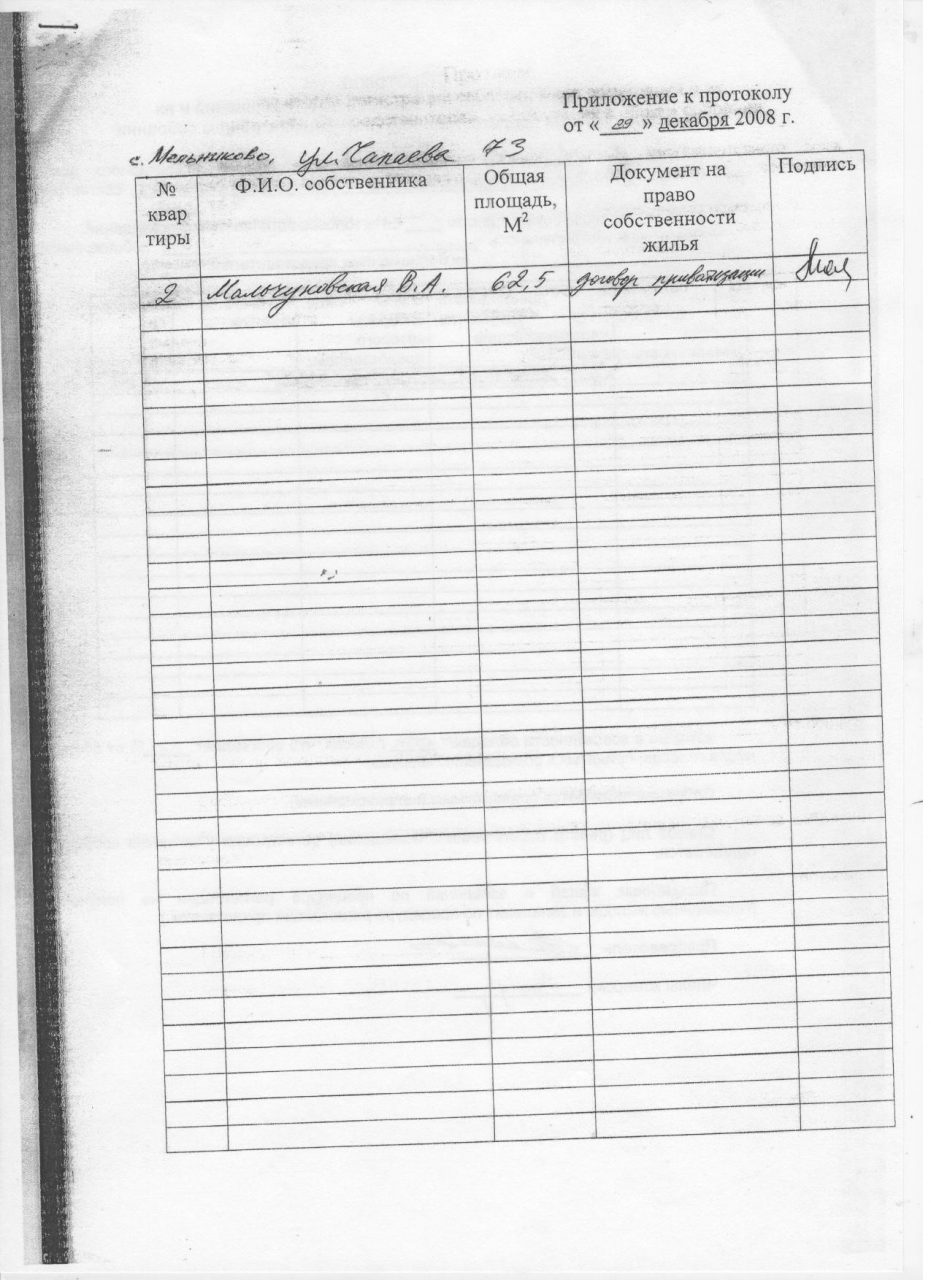 Приложение к протоколу
от « 29 » декабря 2008 г.
с. Мельниково, ул. Чапаева 73
№ квар тиры Ф.И.О. собственника Общая площадь, М2 Документ на право собственности жилья Подпись
2 Мальчуковская В.А. 62,5 договор приватизации